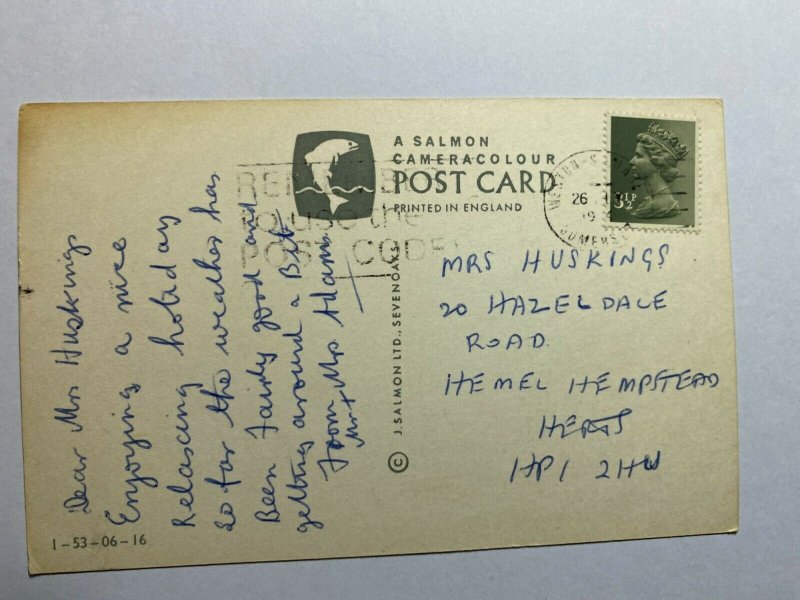 Dear Mrs Huskings
Enjoying a nice
Relaxing holiday
so far the weather has
Been Fairly good and
getting around a Bit
from Mrs Adams
Mr +
1-53-06-16
A SALMON
CAMERACOLOUR
POST CARD
PRINTED IN ENGLAND
© J. SALMON LTD., SEVENOAKS
REMEMBER
to use the
POST CODE
WESTON-S-
26
19
SOMERSET
3½P
MRS HUSKINGS
20 HAZELDALE
ROAD.
HEMEL HEMPSTEAD
HERTS
HP1 2HW